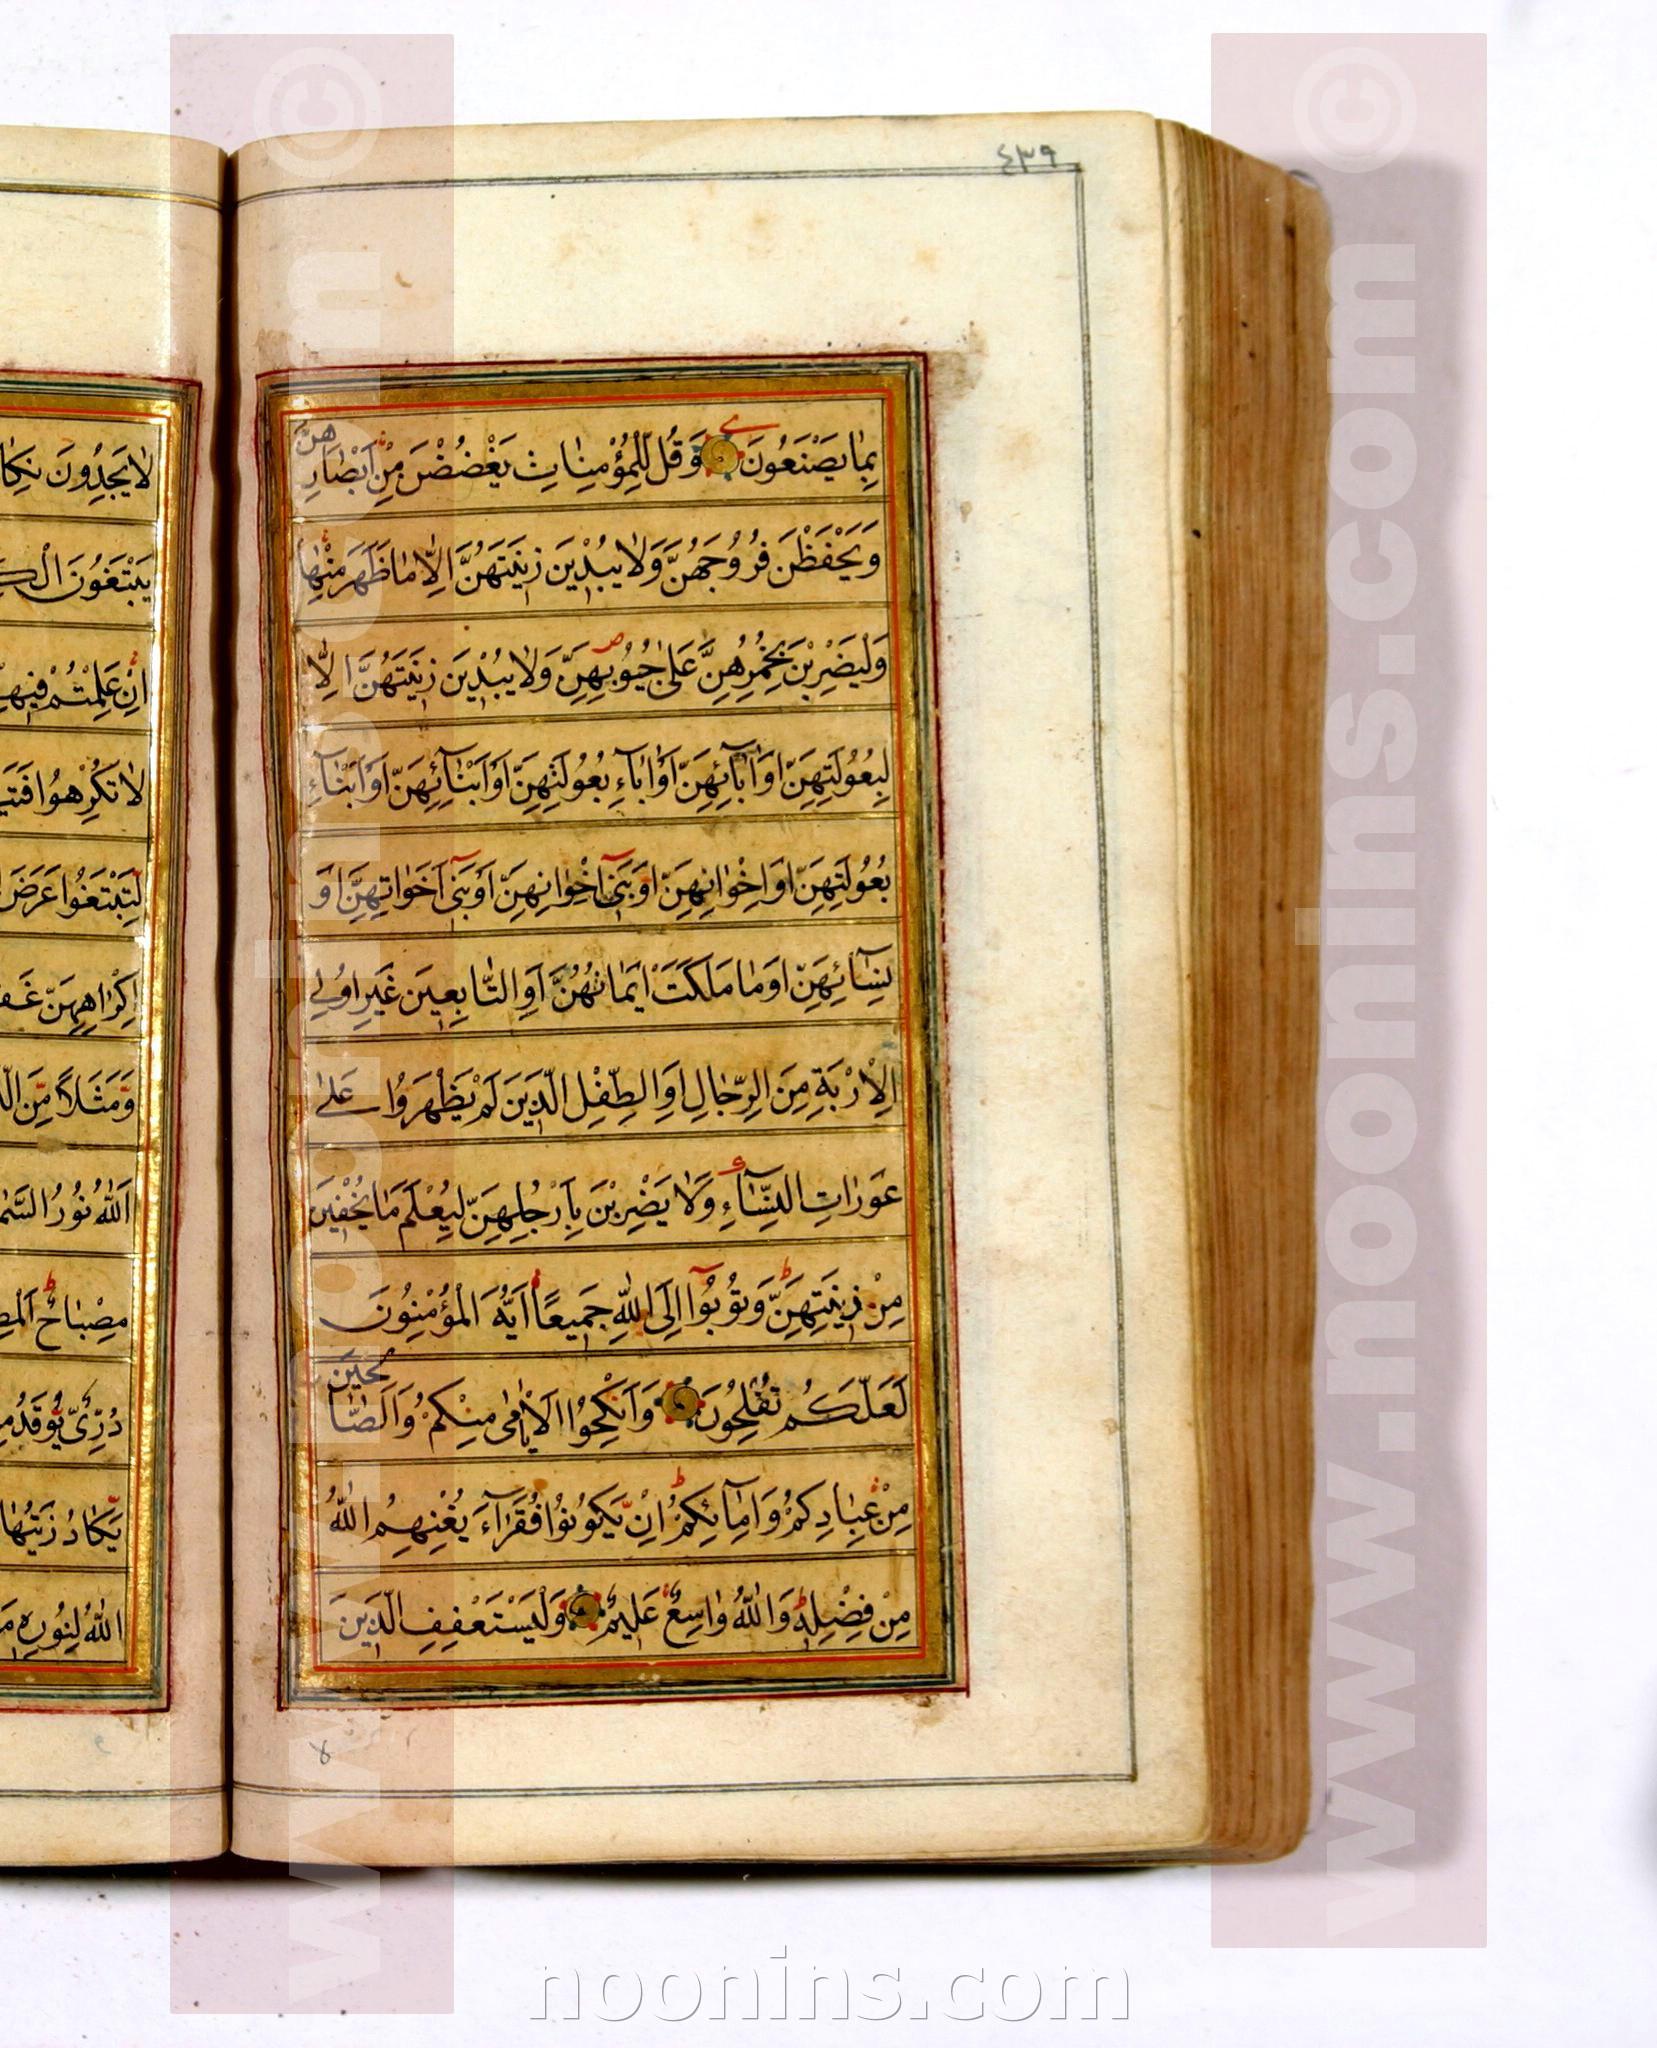 ٤٣٩
بِمٰا يَصْنَعُونَ وَقُل لِّلْمُؤْمِنٰاتِ يَغْضُضْنَ مِنْ اَبْصٰارِهِنَّ
وَيَحْفَظْنَ فُرُوجَهُنَّ وَلٰا يُبْدِينَ زِينَتَهُنَّ اِلّٰا مٰا ظَهَرَ مِنْهٰا
وَلْيَضْرِبْنَ بِخُمُرِهِنَّ عَلىٰ جُيُوبِهِنَّ وَلٰا يُبْدِينَ زِينَتَهُنَّ اِلّٰا
لِبُعُولَتِهِنَّ اَوْ اٰبٰٓائِهِنَّ اَوْ اٰبٰٓاءِ بُعُولَتِهِنَّ اَوْ اَبْنٰٓائِهِنَّ اَوْ اَبْنٰٓاءِ
بُعُولَتِهِنَّ اَوْ اِخْوٰانِهِنَّ اَوْ بَنِيٓ اِخْوٰانِهِنَّ اَوْ بَنِيٓ اَخَوٰاتِهِنَّ اَوْ
نِسٰٓائِهِنَّ اَوْ مٰا مَلَكَتْ اَيْمٰانُهُنَّ اَوِ التّٰابِعِينَ غَيْرِ اُولِي
الْاِرْبَةِ مِنَ الرِّجٰالِ اَوِ الطِّفْلِ الَّذِينَ لَمْ يَظْهَرُوا عَلىٰ
عَوْرٰاتِ النِّسٰٓاءِ وَلٰا يَضْرِبْنَ بِاَرْجُلِهِنَّ لِيُعْلَمَ مٰا يُخْفِينَ
مِنْ زِينَتِهِنَّ وَتُوبُوٓا اِلَى اللّٰهِ جَمِيعًا اَيُّهَ الْمُؤْمِنُونَ
لَعَلَّكُمْ تُفْلِحُونَ وَاَنْكِحُوا الْاَيٰامىٰ مِنْكُمْ وَالصّٰالِحِينَ
مِنْ عِبٰادِكُمْ وَاِمٰٓائِكُمْ اِنْ يَكُونُوا فُقَرٰٓاءَ يُغْنِهِمُ اللّٰهُ
مِنْ فَضْلِهِ وَاللّٰهُ وٰاسِعٌ عَلِيمٌ وَلْيَسْتَعْفِفِ الَّذِينَ
لٰا يَجِدُونَ نِكٰا
يَبْتَغُونَ الْكـ
اِنْ عَلِمْتُمْ فِيهِـ
لٰا تُكْرِهُوا فَتَيـ
لِتَبْتَغُوا عَرَضَ
اِكْرٰاهِهِنَّ غَفـ
وَمَثَلًا مِنَ الَّـ
اَللّٰهُ نُورُ السَّمٰـ
مِصْبٰاحٌ اَلْمِصـ
دُرِّيٌّ يُوقَدُ مِـ
يَكٰادُ زَيْتُهٰا
اللّٰهُ لِنُورِهِ مَـ
www.noonins.com ©
www.noonins.com ©
noonins.com